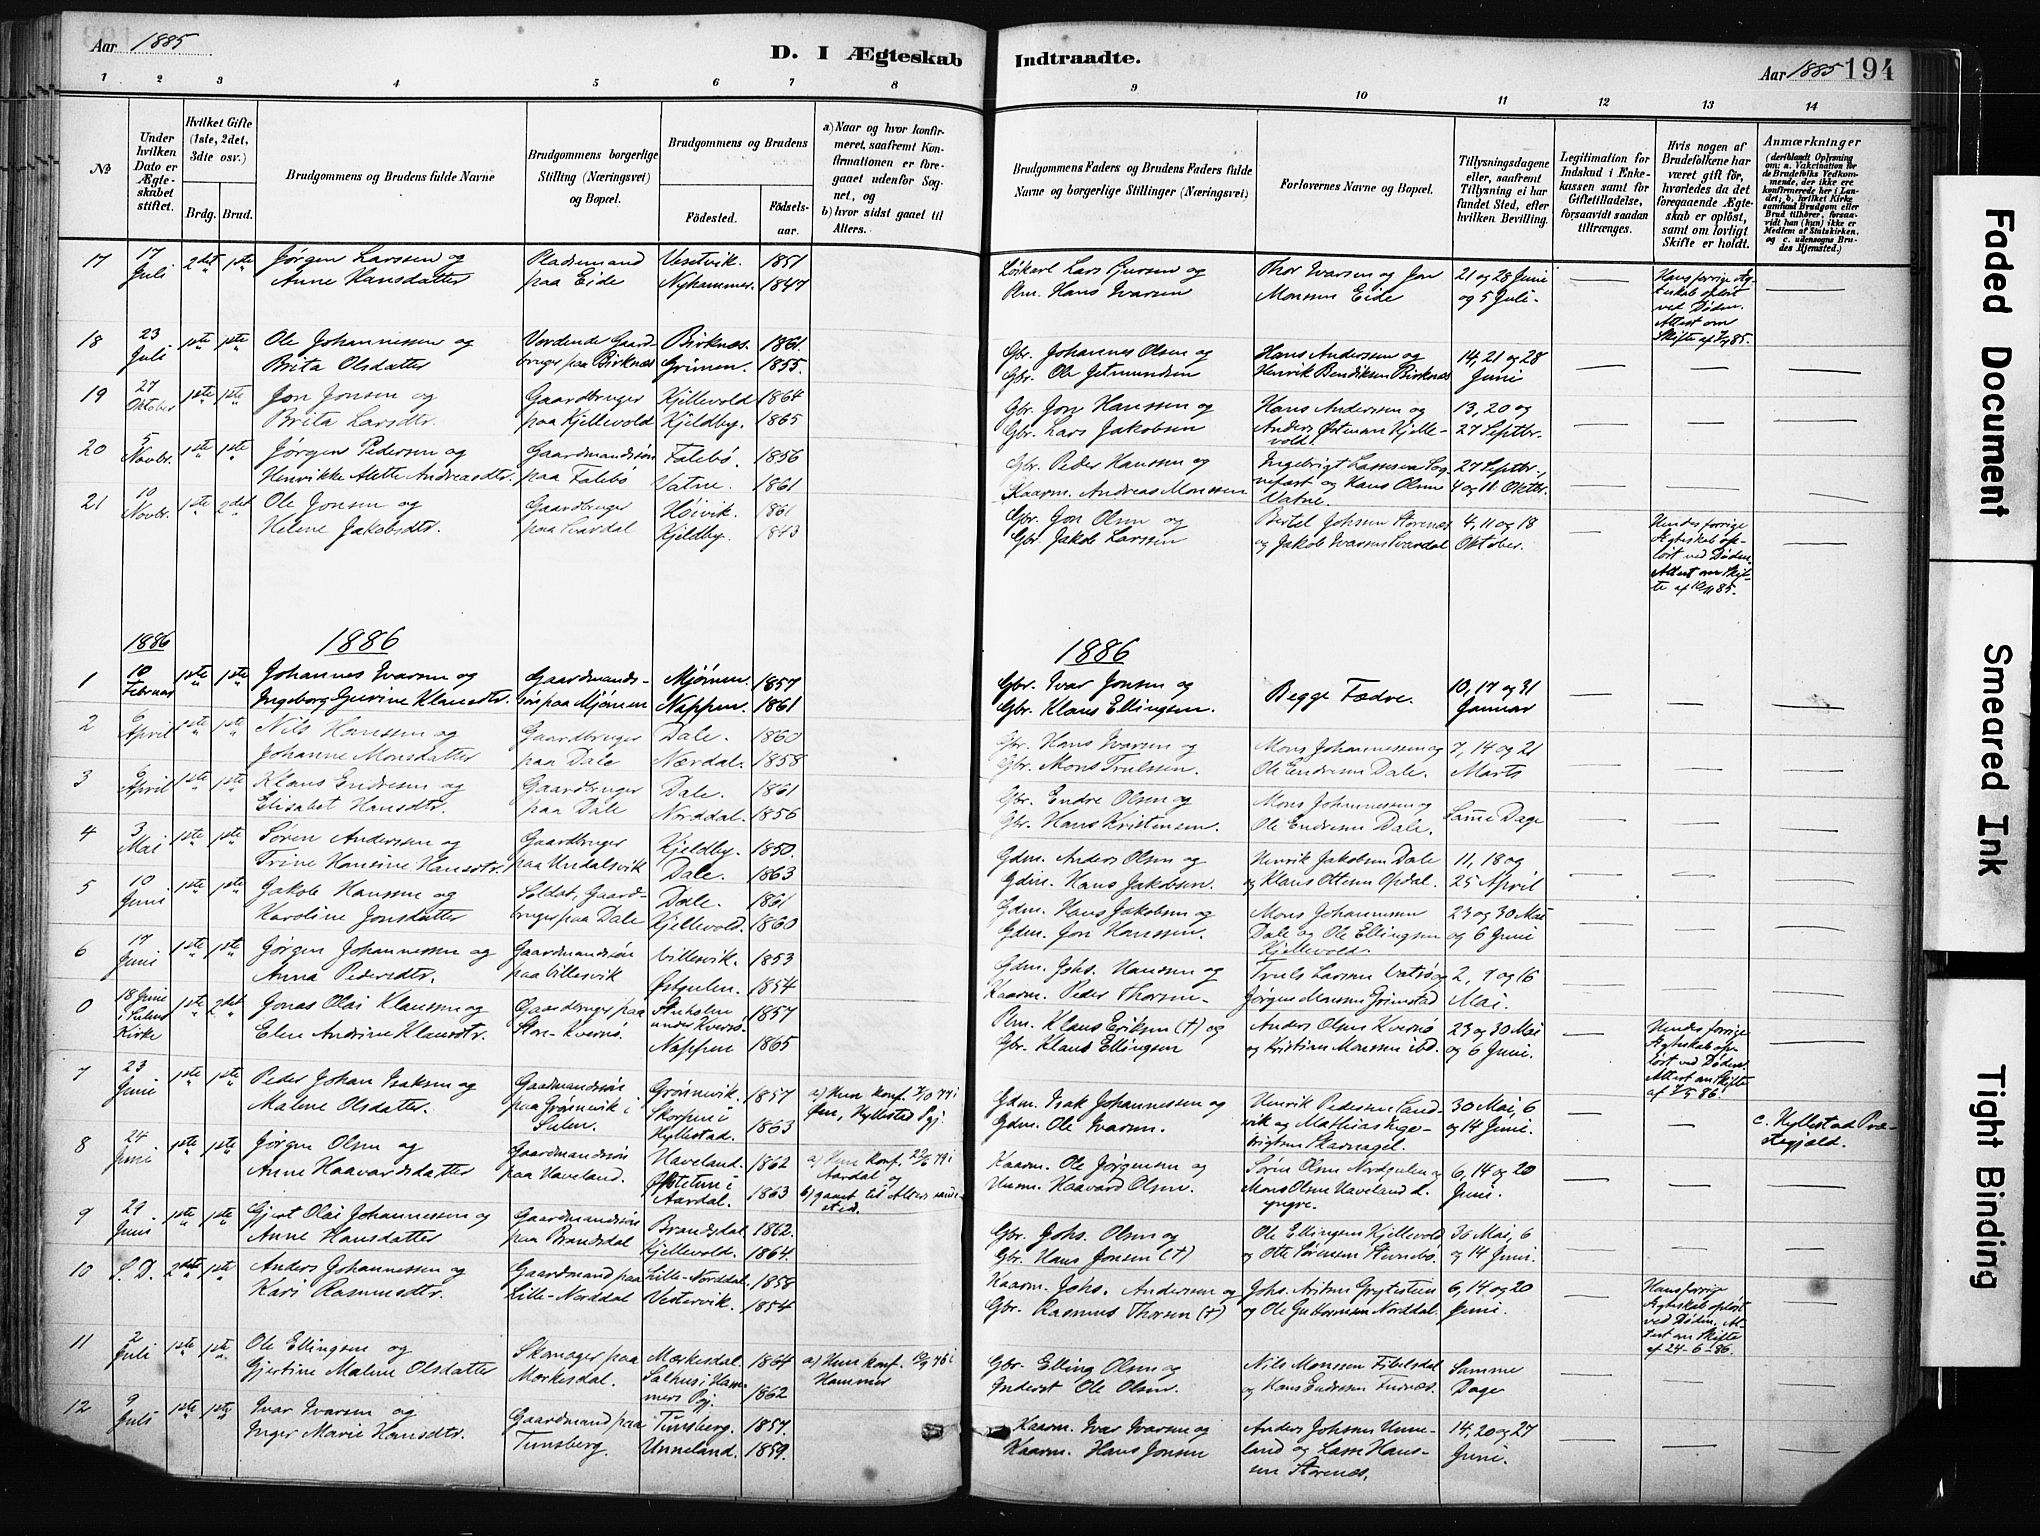 Aar 1885
D. I Ægteskab
1 2 3 4 5 6 7 8
№
Under hvilken Dato er Ægteskabet stiftet.
Hvilket Gifte (1ste, 2det, 3die osv.)
Brdg. Brud.
Brudgommens og Brudens fulde Navne
Brudgommens borgerlige Stilling (Næringsvei) og Bopæl.
Brudgommens og Brudens
Fødested. Fødselsaar.
a) Naar og hvor konfirmeret, saafremt Konfirmationen er foregaaet udenfor Sognet, og
b) hvor sidst gaaet til Alters.
17 17 Juli 2det 1ste Jørgen Larssen og Pladsmand Vesetvik. 1851
Anne Hansdatter paa Eide Nyhammer. 1847
18 23 Juli 1ste 1ste Ole Johannessen og Vordende Gaard- Birknæs. 1861
Brita Olsdatter bruger paa Birknæs Grimen. 1855.
19 27 Oktober 1ste 1ste Jon Jonsen og Gaardbruger Kjellevold 1864
Brita Larsdtr. paa Kjellevold Kjeldby. 1865
20 5 Novbr. 1ste 1ste Jørgen Pedersen og Gaardmandssøn Falebø. 1856
Henrikke Alette Andreasdtr. paa Falebø Vatne. 1861
21 10 Novbr. 1ste 2det Ole Jonsen og Gaardbruger Høivik. 1861
Helene Jakobsdtr. paa Svardal Kjeldby. 1843
1886 1886
1 10 Februar 1ste 1ste Johannes Ivarsen og Gaardmands- Mjømen. 1857
Ingeborg Gurine Klausdtr. søn paa Mjømen Nappen. 1861
2 6 April 1ste 1ste Nils Hanssen og Gaardbruger Dale. 1860
Johanne Monsdatter paa Dale Nordal. 1858
3 6 April 1ste 1ste Klaus Endresen og Gaardbruger Dale. 1861
Elisabet Hansdtr. paa Dale Norddal. 1856
4 3 Mai 1ste 1ste Søren Andersen og Gaardbruger Kjeldby. 1850.
Trine Hansine Hansdtr. paa Undalsvik Dale. 1863
5 10 Juni 1ste 1ste Jakob Hanssen og Soldat, Gaard- Dale. 1861
Karoline Jonsdatter bruger paa Dale Kjellevold. 1860
6 17 Juni 1ste 1ste Jørgen Johannessen og Gaardmandssøn Villesvik. 1853
Anna Pedersdtr. paa Villesvik Østgulen. 1854
0 18 Juni i Sulens Kirke 1ste 2det Jonas Olai Klaussen og Gaardbruger paa 1857
Elen Andrine Klausdtr. Store-Kvernø. Nappen 1865
7 23 Juni 1ste 1ste Peder Johan Isaksen og Gaardmandssøn Grønevik. 1857 a) Hun konf. i
Malene Olsdatter. paa Grønevik i Sulen. Skorpen i Hyllestad. 1863 Øen, Hyllestad Pgj.
8 24 Juni 1ste 1ste Jørgen Olsen og Gaardmandssøn Haveland. 1862 a) Hun konf. i Aardal og
Anne Haavardsdatter paa Haveland. i Aardal. 1863 b) gaaet til Alters
9 29 Juni 1ste 1ste Gjert Olai Johannessen og Gaardmandssøn Brandsdal 1862.
Anne Hansdatter paa Brandsdal Kjellevold. 1864.
10 S. D. 2det 1ste Anders Johannessen og Gaardmand paa Lille-Norddal. 1858
Kari Rasmusdtr. Lille-Norddal Vestervik. 1854
11 2 Juli 1ste 1ste Ole Ellingsen og Skomager paa Mærkesdal. 1864 a) Hun konf. i
Gjertine Malene Olsdatter Mærkesdal. Salhus i Hammers Pgj. 1862 Hammer
12 9 Juli 1ste 1ste Ivar Ivarsen og Gaardmand paa Tunsberg. 1857.
Inger Marie Hansdtr. Tunsberg. Unneland. 1859.
Indtraadte. Aar 1885 194
9 10 11 12 13 14
Brudgommens Faders og Brudens Faders fulde Navne og borgerlige Stillinger (Næringsvei)
Forlovernes Navne og Bopæl.
Tillysningsdagene eller, saafremt Tillysning ei har fundet Sted, efter hvilken Bevilling.
Legitimation for Indskud i Enkekassen samt for Giftetilladelse, forsaavidt saadan tiltrænges.
Hvis nogen af Brudefolkene har været gift før, hvorledes da det foregaaende Ægteskab er opløst, samt om lovligt Skifte er holdt.
Anmærkninger
(deriblandt Oplysning om: a. Vakcination for de Brudefolks Vedkommende, der ikke ere konfirmerede her i Landet; b. hvilket Kirkesamfund Brudgom eller Brud tilhører, forsaavidt han (hun) ikke er Medlem af Statskirken, og c. udensogns Brudes Hjemsted.)
Løskarl Lars og Thor Ivarsen og Jon 21 og 28 Juni Hans forrige Ægteskab opløst ved Døden. Attest om Skifte af
Plm. Hans Ivarsen Monsen Eide og 5 Juli.
Gbr. Johannes Olsen og Hans Anderssen og 14, 21 og 28
Gbr. Ole Jetmundsen Henrik Bendiksen Birknæs Juni
Gbr. Jon Hanssen og Hans Anderssen og 13, 20 og
Gbr. Lars Jakobsen Anders Østeman Kjellevold. 27 Septbr.
Gbr. Peder Hanssen og Ingebrigt Lassesen Sognefæst og Hans Olsen Vatne. 27 Septbr.,
Kaarm. Andreas Monssen 4 og 11 Oktbr.
Gbr. Jon Olsen og Bertel Johnsen Storenæs 4, 11 og 18 Hendes forrige Ægteskab opløst ved Døden. Attest om Skifte af
Gbr. Jakob Larssen og Jakob Ivarsen Svardal Oktober.
1886
Gbr. Ivar Jonsen og Begge Fædre. 10, 17 og 31
Gbr. Klaus Ellingsen. Januar
Gbr. Hans Ivarsen og Mons Johannessen og 7, 14 og 21
Gbr. Mons Trulssen. Ole Endresen Dale. Marts
Gbr. Endre Olsen og Mons Johannessen og Same Dage
Gbr. Hans Kristensen. Ole Endresen Dale.
Gdm. Anders Olsen og Henrik Jakobsen Dale 11, 18 og
Gdm. Hans Jakobsen. og Klaus Ottesen Opdal. 25 April
Gdm. Hans Jakobsen og Mons Johannesen 23 og 30 Mai
Gdm. Jon Hanssen. Dale og Ole Ellingsen Kjellevold. og 6 Juni
Gdm. Johs. Hanssen og Truls Larsen Vatsø og 2, 9 og 16
Kaarm. Peder Thorsen. Jørgen Monssen Grimstad Mai.
Plm. Klaus Eriksen (†) og Anders Olsen Kvernø 23 og 30 Mai Hendes forrige Ægteskab opløst ved Døden. Attest om Skifte af
Gbr. Klaus Ellingsen og Kristian Monssen ibd. og 6 Juni.
Gdm. Isak Johannessen og Henrik Pedersen Sandvik og Mathias Ingebrigtsen 30 Mai, 6 c. Hyllestad Præstegjeld.
Gdm. Ole Ivarsen. og 14 Juni.
Kaarm. Ole Jørgensen og Søren Olsen Nordgulen og 6, 14 og 20
Husm. Haavard Olsen. Mons Olsen Haveland d. yngre. Juni.
Gbr. Johs. Olsen og Ole Ellingsen Kjellevold 30 Mai, 6
Gbr. Hans Jonsen (†) og Otte Sørensen Stevnebø. og 14 Juni.
Kaarm. Johs. Andersen og Johs. 6, 14 og 20 Hans forrige Ægteskab opløst ved Døden. Attest om Skifte af 24-6-86.
Gbr. Rasmus Thorsen (†) og Ole Guttormsen Norddal. Juni.
Gbr. Elling Olsen og Nils Monssen Samme
Inderst Ole Olsen. og Hans Endresen Dage
Kaarm. Ivar Ivarsen og Anders Johnsen Unneland og Lasse Hanssen Storenæs. 14, 20 og 27
Kaarm. Hans Jonsen Juni.
Faded Document
Smeared Ink
Tight Binding